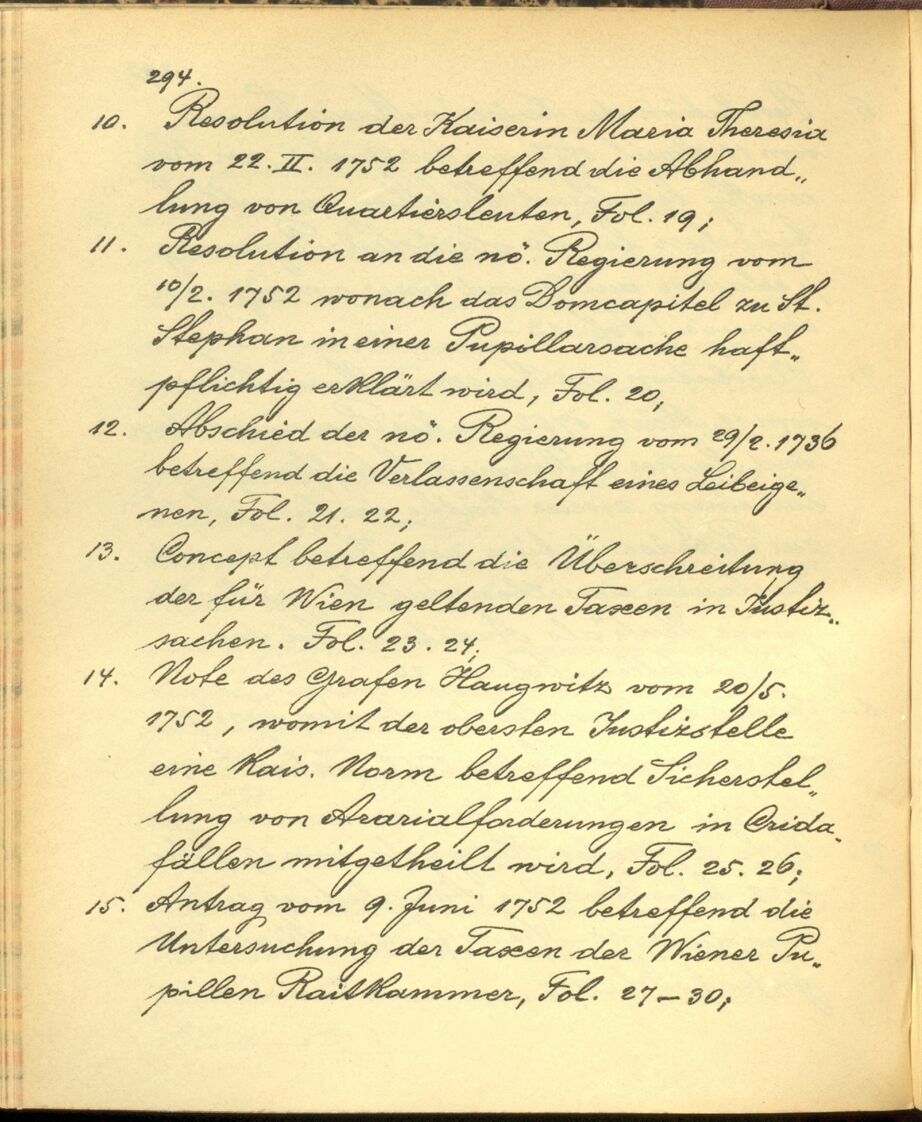 294.
10. Resolution der Kaiserin Maria Theresia
vom 22. II. 1752 betreffend die Abhand„
lung von Quartiersleuten, Fol. 19;
11. Resolution an die nö. Regierung vom
10/2. 1752 wonach das Domcapitel zu St.
Stephan in einer Pupillarsache haft„
pflichtig erklärt wird, Fol. 20;
12. Abschied der nö. Regierung vom 29/2. 1736
betreffend die Verlassenschaft eines Leibeige„
nen, Fol. 21. 22;
13. Concept betreffend die Überschreitung
der für Wien geltenden Taxen in Justiz„
sachen. Fol. 23. 24;
14. Note des Grafen Haugwitz vom 20/5.
1752, womit der obersten Justizstelle
eine Kais. Norm betreffend Sicherstel„
lung von Ararialforderungen in Crida„
fällen mitgetheilt wird, Fol. 25. 26;
15. Antrag vom 9. Juni 1752 betreffend die
Untersuchung der Taxen der Wiener Pu„
pillen Raitkammer, Fol. 27 – 30;